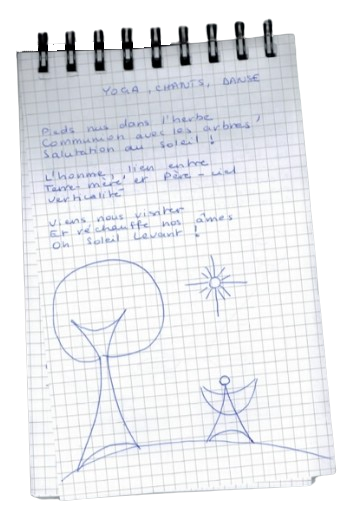 YOGA, CHANTS, DANSE
Pieds nus dans l'herbe
Communion avec les arbres,
Salutation au Soleil !
L'homme, lien entre
Terre-mère et Père-ciel
Verticalité
Viens nous visiter
Et réchauffe nos âmes
Oh Soleil Levant !